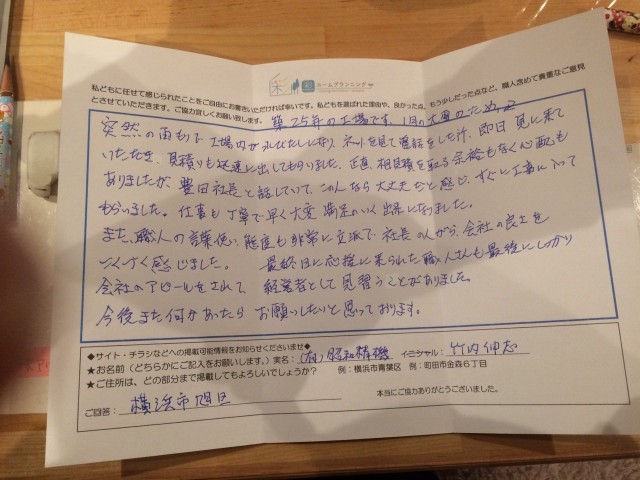 彩 ホームプランニング
私どもに任せて感じられたことをご自由にお書きいただければ幸いです。私どもを選ばれた理由や、良かった点、もう少しだった点など、職人含めて貴重なご意見
とさせていただきます。ご協力宜しくお願い致します。
築25年の工場です。1月の大雨のため
突然の雨もりで工場内がびしょびしょになり、ネットを見て電話をした所、即日見に来て
いただき、見積りも迅速に出してもらいました。正直、相見積を取る余裕もなく心配も
ありましたが、豊田社長と話していて、この人なら大丈夫だと感じ、すぐに工事に入って
もらいました。仕事も丁寧で早く大変満足のいく出来になりました。
また、職人の言葉使い、態度も非常に立派で、社長の人がら、会社の良さを
つくづく感じました。 最終日に応援に来られた職人さんも最後にしっかり
会社のアピールをされて、経営者として見習うことがありました。
今後また何かあったらお願いしたいと思っております。
◆サイト・チラシなどへの掲載可能情報をお知らせくださいませ◆
★お名前(どちらかにご記入をお願いします。)実名:(有)昭和精機 イニシャル:竹内伸志
★ご住所は、どの部分まで掲載してもよろしいでしょうか? 例:横浜市青葉区 例:町田市金森6丁目
ご回答: 横浜市旭区
本当にご協力ありがとうございました。